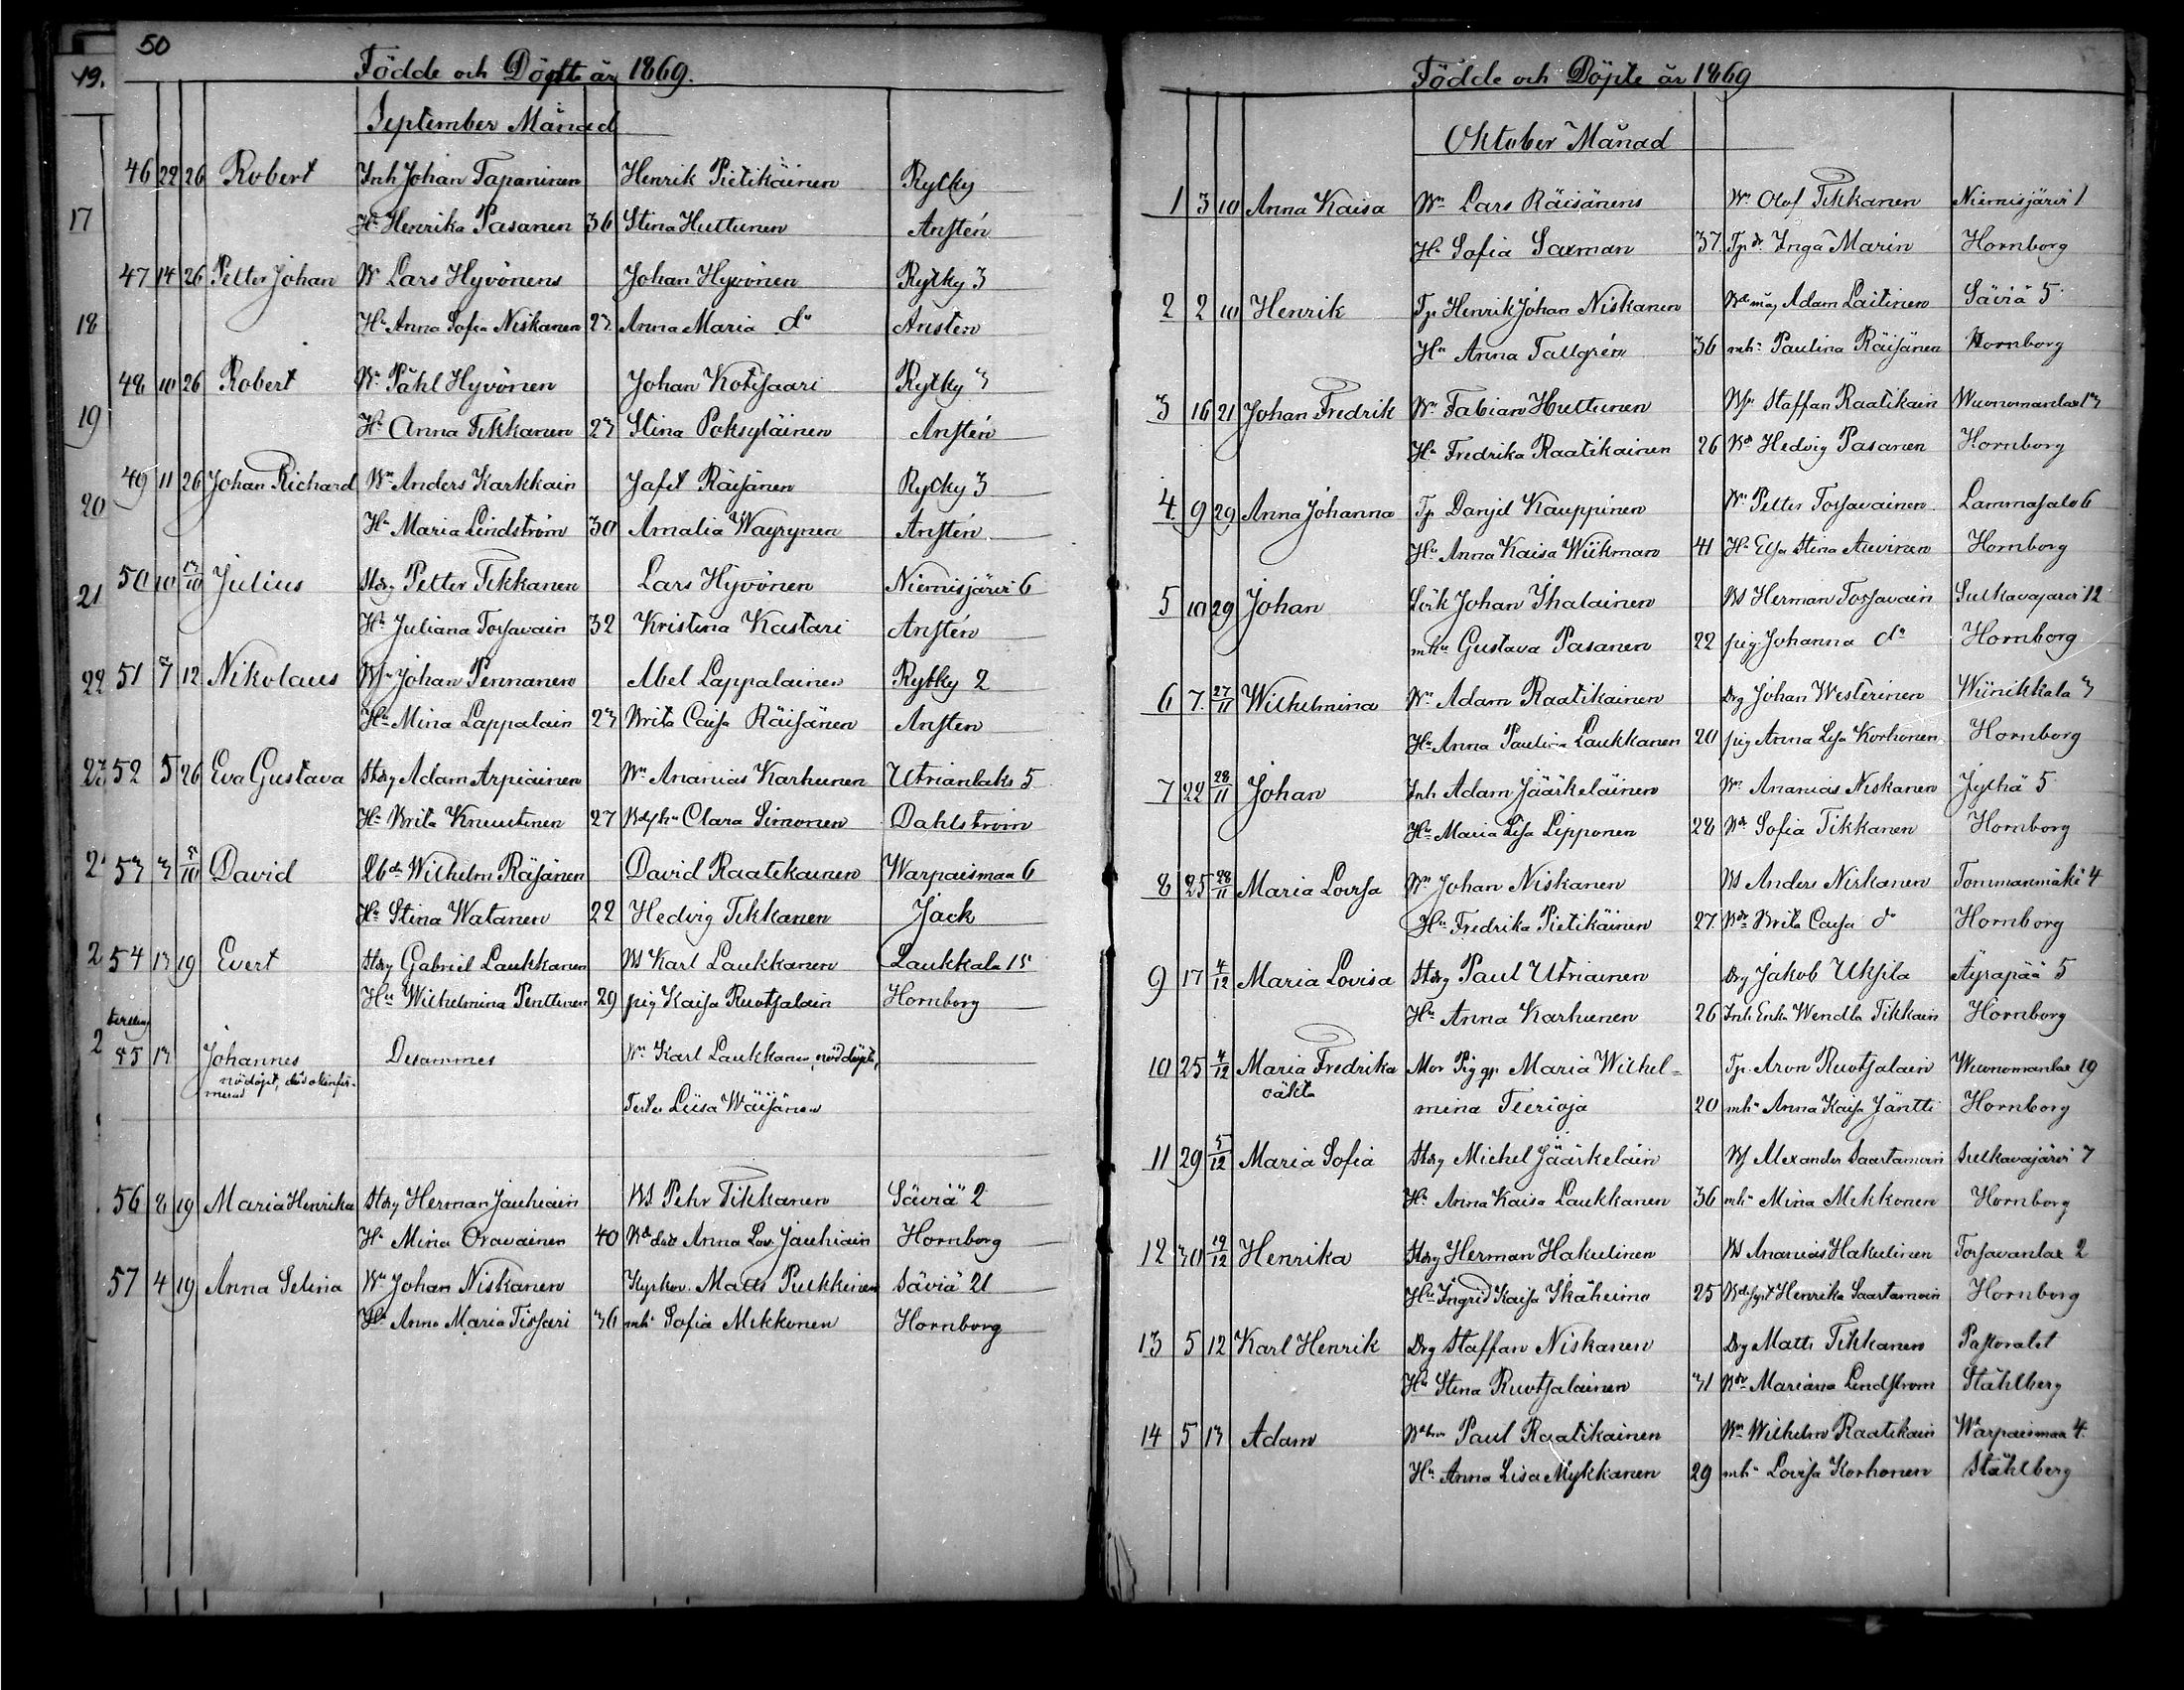 50
Födde och Döpte år 1869.
September Månad
46 22 26 Robert Inh Johan Tapaninen Henrik Pietikäinen Rytky
Hu Henrika Pasanen 36 Stina Huttunen Anstén
47 14 26 Petter Johan Wn Lars Hyvönens Johan Hyvönen Rytky 3
Hu Anna Sofia Niskanen 23 Anna Maria do Ansten
48 10 26 Robert Wn Påhl Hyvönen Johan Kotisaari Rytky 3
Hu Anna Tikkanen 23 Stina Poksyläinen Anstén
49 11 26 Johan Richard Wn Anders Karkkain Jafet Räisänen Rytky 3
Hu Maria Lindström 30 Amalia Wäyrynen Anstén
50 10 3/10 Julius Stdrg Petter Tikkanen Lars Hyvönen Niemisjärvi 6
Hu Juliana Tossavain 32 Kristina Kastari Anstén
51 7 12 Nikolaus Bs Johan Pennanen Abel Lappalainen Rytky 2
Hu Mina Lappalain 23 Brita Caisa Räisänen Ansten
52 5 26 Eva Gustava Stdrg Adam Arpiainen Wn Ananias Karhunen Utrianlaks 5
Hu Brita Knuutinen 27 Clara Simonen Dahlström
53 3 5/10 David Wilhelm Räsänen David Raatikainen Warpaismaa 6
Hu Stina Watanen 22 Hedvig Tikkanen Jack
54 13 19 Evert Stdrg Gabriel Laukkanen Bs Karl Laukkanen Laukkala 15
Hu Wilhelmina Penttinen 29 pig Kaisa Ruotsalain Hornborg
55 13 Johannes Desammes Wn Karl Laukkanen, nöddöpte,
Liisa Wäisänen
56 8 19 Maria Henrika Stdrg Herman Jauhiain Bs Pehr Tikkanen Säviä 2
Hu Mina Oravainen 40 Anna Lov. Jauhiain Hornborg
57 4 19 Anna Selina Wn Johan Niskanen Kyrkov. Matts Pulkkinen Säviä 21
Hu Anna Maria Tissari 36 mh Sofia Mikkonen Hornborg
19.
17
18
19
20
21
22
23
2
2
2
Födde och Döpte år 1869
Oktober Månad
1 3 10 Anna Kaisa Wn Lars Räisänens Wn Olof Tikkanen Niemisjärvi 1
Hu Sofia Saxman 37 Tp dr Inga Marin Hornborg
2 2 10 Henrik Tp Henrik Johan Niskanen Adam Laitinen Säviä 5
Hu Anna Tallgrén 36 mhu Paulina Räisänen Hornborg
3 16 21 Johan Fredrik Wn Fabian Huttunen Staffan Raatikain Wuonomanlax 13
Hu Fredrika Raatikainen 26 Hedvig Pasanen Hornborg
4 9 29 Anna Johanna Tp Danjel Kauppinen Wn Petter Tossavainen Lammasalo 6
Hu Anna Kaisa Wiikman 41 Hu Elsa Stina Auvinen Hornborg
5 10 29 Johan Sörk Johan Ihalainen Bs Herman Tossavain Sulkavajärvi 12
mhu Gustava Pasanen 22 pig Johanna do Hornborg
6 7 27/11 Wilhelmina Wn Adam Raatikainen Drg Johan Westerinen Wiinikkala 3
Hu Anna Paulina Laukkanen 20 pig Anna Lisa Korhonen Hornborg
7 22 28/11 Johan Inh Adam Jääskeläinen Wn Ananias Niskanen Jylhä 5
Hu Maria Lisa Lipponen 28 Sofia Tikkanen Hornborg
8 25 28/11 Maria Lovisa Wn Johan Niskanen Bs Anders Niskanen Tommanmäki 4
Hu Fredrika Pietikäinen 27 Brita Caisa do Hornborg
9 17 4/12 Maria Lovisa Stdrg Paul Utriainen Drg Jakob Uksila Äyräpää 5
Hu Anna Karhunen 26 Inh Enka Wendla Tikkain Hornborg
10 25 4/12 Maria Fredrika Mor Pig gr Maria Wilhel= Tp. Aron Ruotsalain Wuonomanlax 19
oäkta mina Tierioja 20 mhu Anna Kaisa Jäntti Hornborg
11 29 5/12 Maria Sofia Stdrg Michel Jääskeläin Bs Alexander Saastamoin Sulkavajärvi 7
Hu Anna Kaisa Laukkanen 36 mhu Mina Mikkonen Hornborg
12 30 19/12 Henrika Stdrg Herman Hakulinen Bs Ananias Hakulinen Tossavanlax 2
Hu Ingrid Kaisa Ikäheimo 25 Henrika Saastamoin Hornborg
13 5 12 Karl Henrik Drg Staffan Niskanen Drg Matts Tikkanen Pastoralet
Hu Stina Ruotsalainen 31 Mariana Lindstrom Ståhlberg
14 5 13 Adam Paul Raatikainen Wn Wilhelm Raatikain Warpaismaa 4
Hu Anna Lisa Mykkänen 29 mhu Lovisa Korhonen Ståhlberg